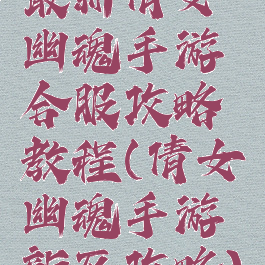 最新倩女
幽魂手游
合服攻略
教程(倩女
幽魂手游
新区攻略)